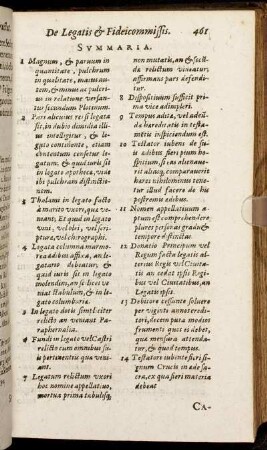 De Legatis & Fideicommissis. 461
SVMMARIA.
1 Magnum, & paruum in
quantitate, pulchrum
in qualitate, maius au-
tem, & minus ac pulcri
us in relatione versan-
tur secundum Platonem.
2 Pars alicuius rei si lega
ta sit, in dubio dimidia illi
us intelligitur, &
legatò consciente, etiam
contentum censetur le
gatum, & quid iuris sit
in legato apotheca, vide
ibi pulchram distinctio
nem.
3 Thalami in legato facto
à marito vxori, quæ ve-
niant. Et quid in legato
vni, vel ibi, vel scri-
ptura, vel chirographi.
4 Legata columna marmo-
rea ædibus affixa, an le-
gatario debeatur, &
quid iuris sit in legato
molendini, an si licet ve
niat stabulum, & in le-
gato columbaria.
5 In legato doris simpliciter
relicto an veniant Pa-
raphernalia.
6 Fundi in legato vel Castri
relicto cum omnibus sui
is pertinentiis quæ veni
ant.
7 Legatum relictum vxori
hoc nomine appellatiuo,
mortua prima tabulisq;
non mutatis, an & secũ
da relictum videatur,
affirmans pars defendi
tur.
8 Dispositioni sufficit pri
ma vice adimpleri.
9 Tempus aditæ, vel adeũ
dæ hæreditatis in testamẽ
tis inspiciendum est.
10 Testator iubens de suis
ædibus fieri pium ho
spitium, si eas alienaue
rit aliàsq; comparauerit
hares nihilominus tene-
tur illud facere de his
postremis ædibus.
11 Nomen appellatiuum a
ptum est comprehendere
plures personas gradu &
tempore distinctas.
12 Donatio Principum vel
Regum facta legatis al
terius Regis vel Ciuita-
tis an cedat ipsis Regi
bus vel Ciuitatibus, an
Legatis ipsis.
13 Debitore cessante soluere
per viginti annos redi-
tori, decem pura modios
frumenti quos ei debet,
qua mensura attenda-
tur, & quod tempus.
14 Testatore iubente fieri si
gnum Crucis in æde sa-
cra, ex qua fieri materia
debeat
CA-